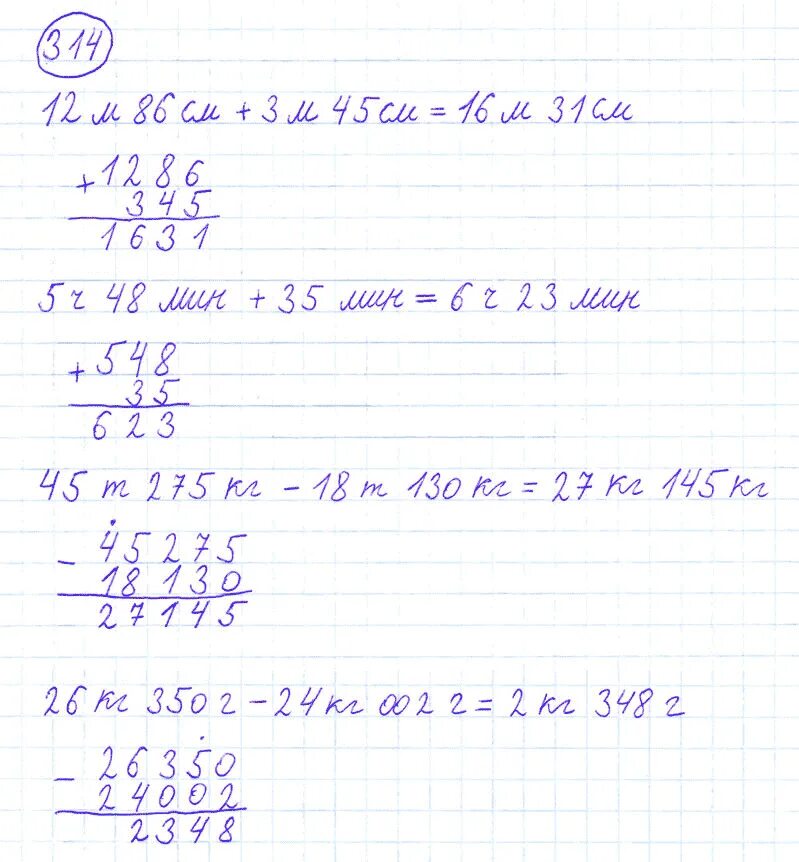 314
12 м 86 см + 3 м 45 см = 16 м 31 см
+ 1286
345
1631
5 ч 48 мин + 35 мин = 6 ч 23 мин
+ 548
35
623
45 т 275 кг - 18 т 130 кг = 27 кг 145 кг
- 45275
18 130
27145
26 кг 350 г - 24 кг 002 г = 2 кг 348 г
- 26350
24002
2348